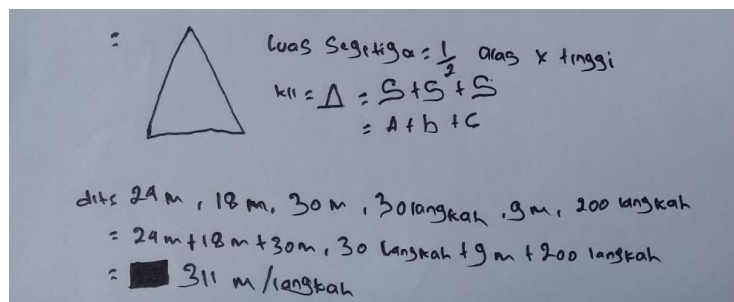 : Luas Segitiga = 1/2 alas x tinggi
kll = Δ = S + S + S
= A + b + C
dit: 24 m, 18 m, 30 m, 30 langkah, 9 m, 200 langkah
= 24 m + 18 m + 30 m, 30 langkah + 9 m + 200 langkah
= 311 m/langkah